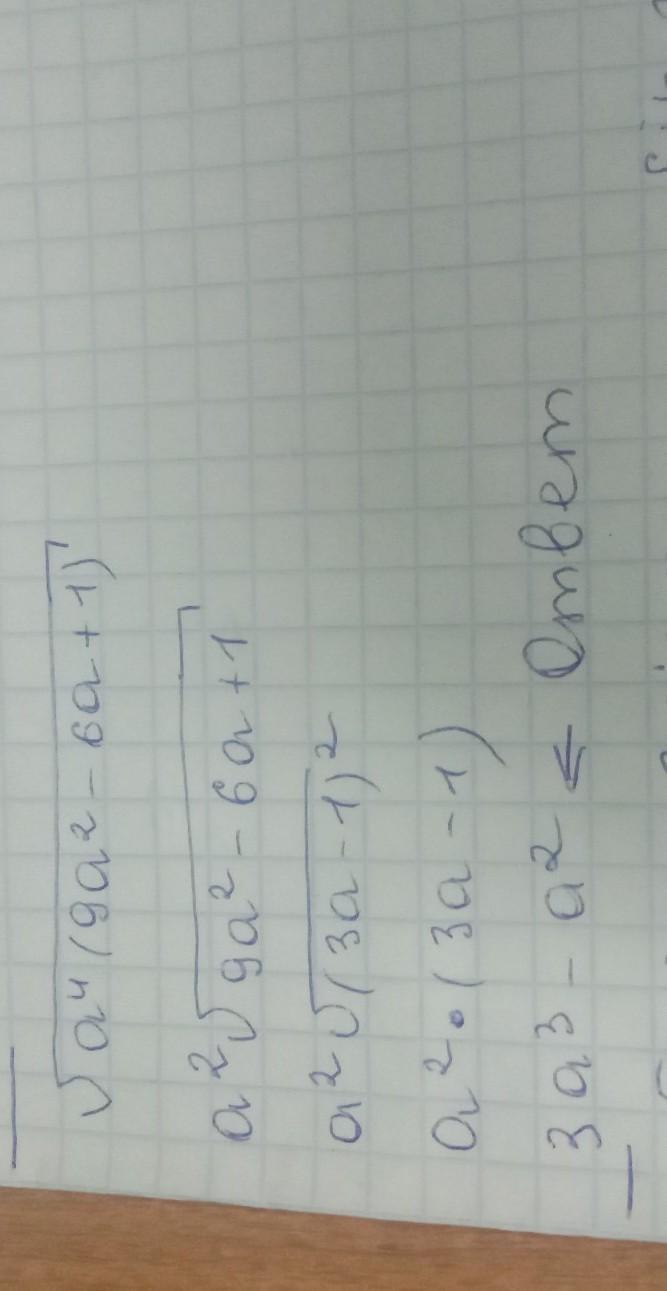 √(a⁴(9a² - 6a + 1))
a²√(9a² - 6a + 1)
a²√((3a - 1)²)
a² • (3a - 1)
3a³ - a² ⇐ Ответ